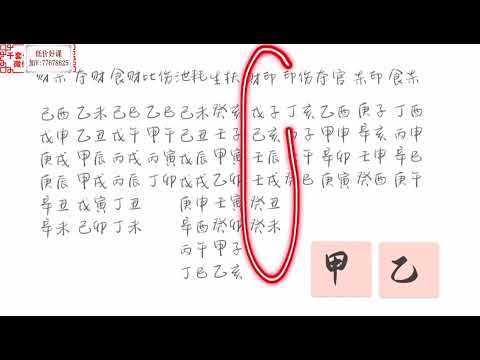 低价好课
加V:77678625
千套
财杀 夺财 食财 比伤 泄耗 生扶 财印 印伤 夺官 杀印 食杀
己酉 乙未 己巳 乙巳 己未 癸亥 戊子 丁亥 乙酉 庚子 丁酉
戊申 乙丑 戊午 甲午 己丑 壬子 己亥 子 甲申 辛亥 丙申
庚戌 甲辰 丙戌 丙寅 戊辰 甲寅 壬辰 午 辛卯 壬申 辛巳
庚辰 甲戌 丙辰 丁卯 戊戌 乙卯 壬戌 巳 庚寅 癸酉 庚午
辛丑 戊寅 丁丑 庚申 壬寅 癸丑
辛未 己卯 丁未 辛酉 癸卯 癸未
丙午 甲子
丁巳 乙亥
甲 乙